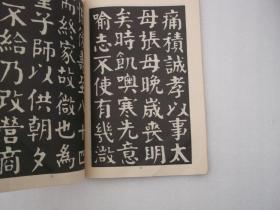 痛積誠孝以事太
母張母晚歲喪明
矣時飢燠寒先意
喻志不使有幾微
至八十四
而終家故微也為
童子師以供朝夕
不給乃改營商